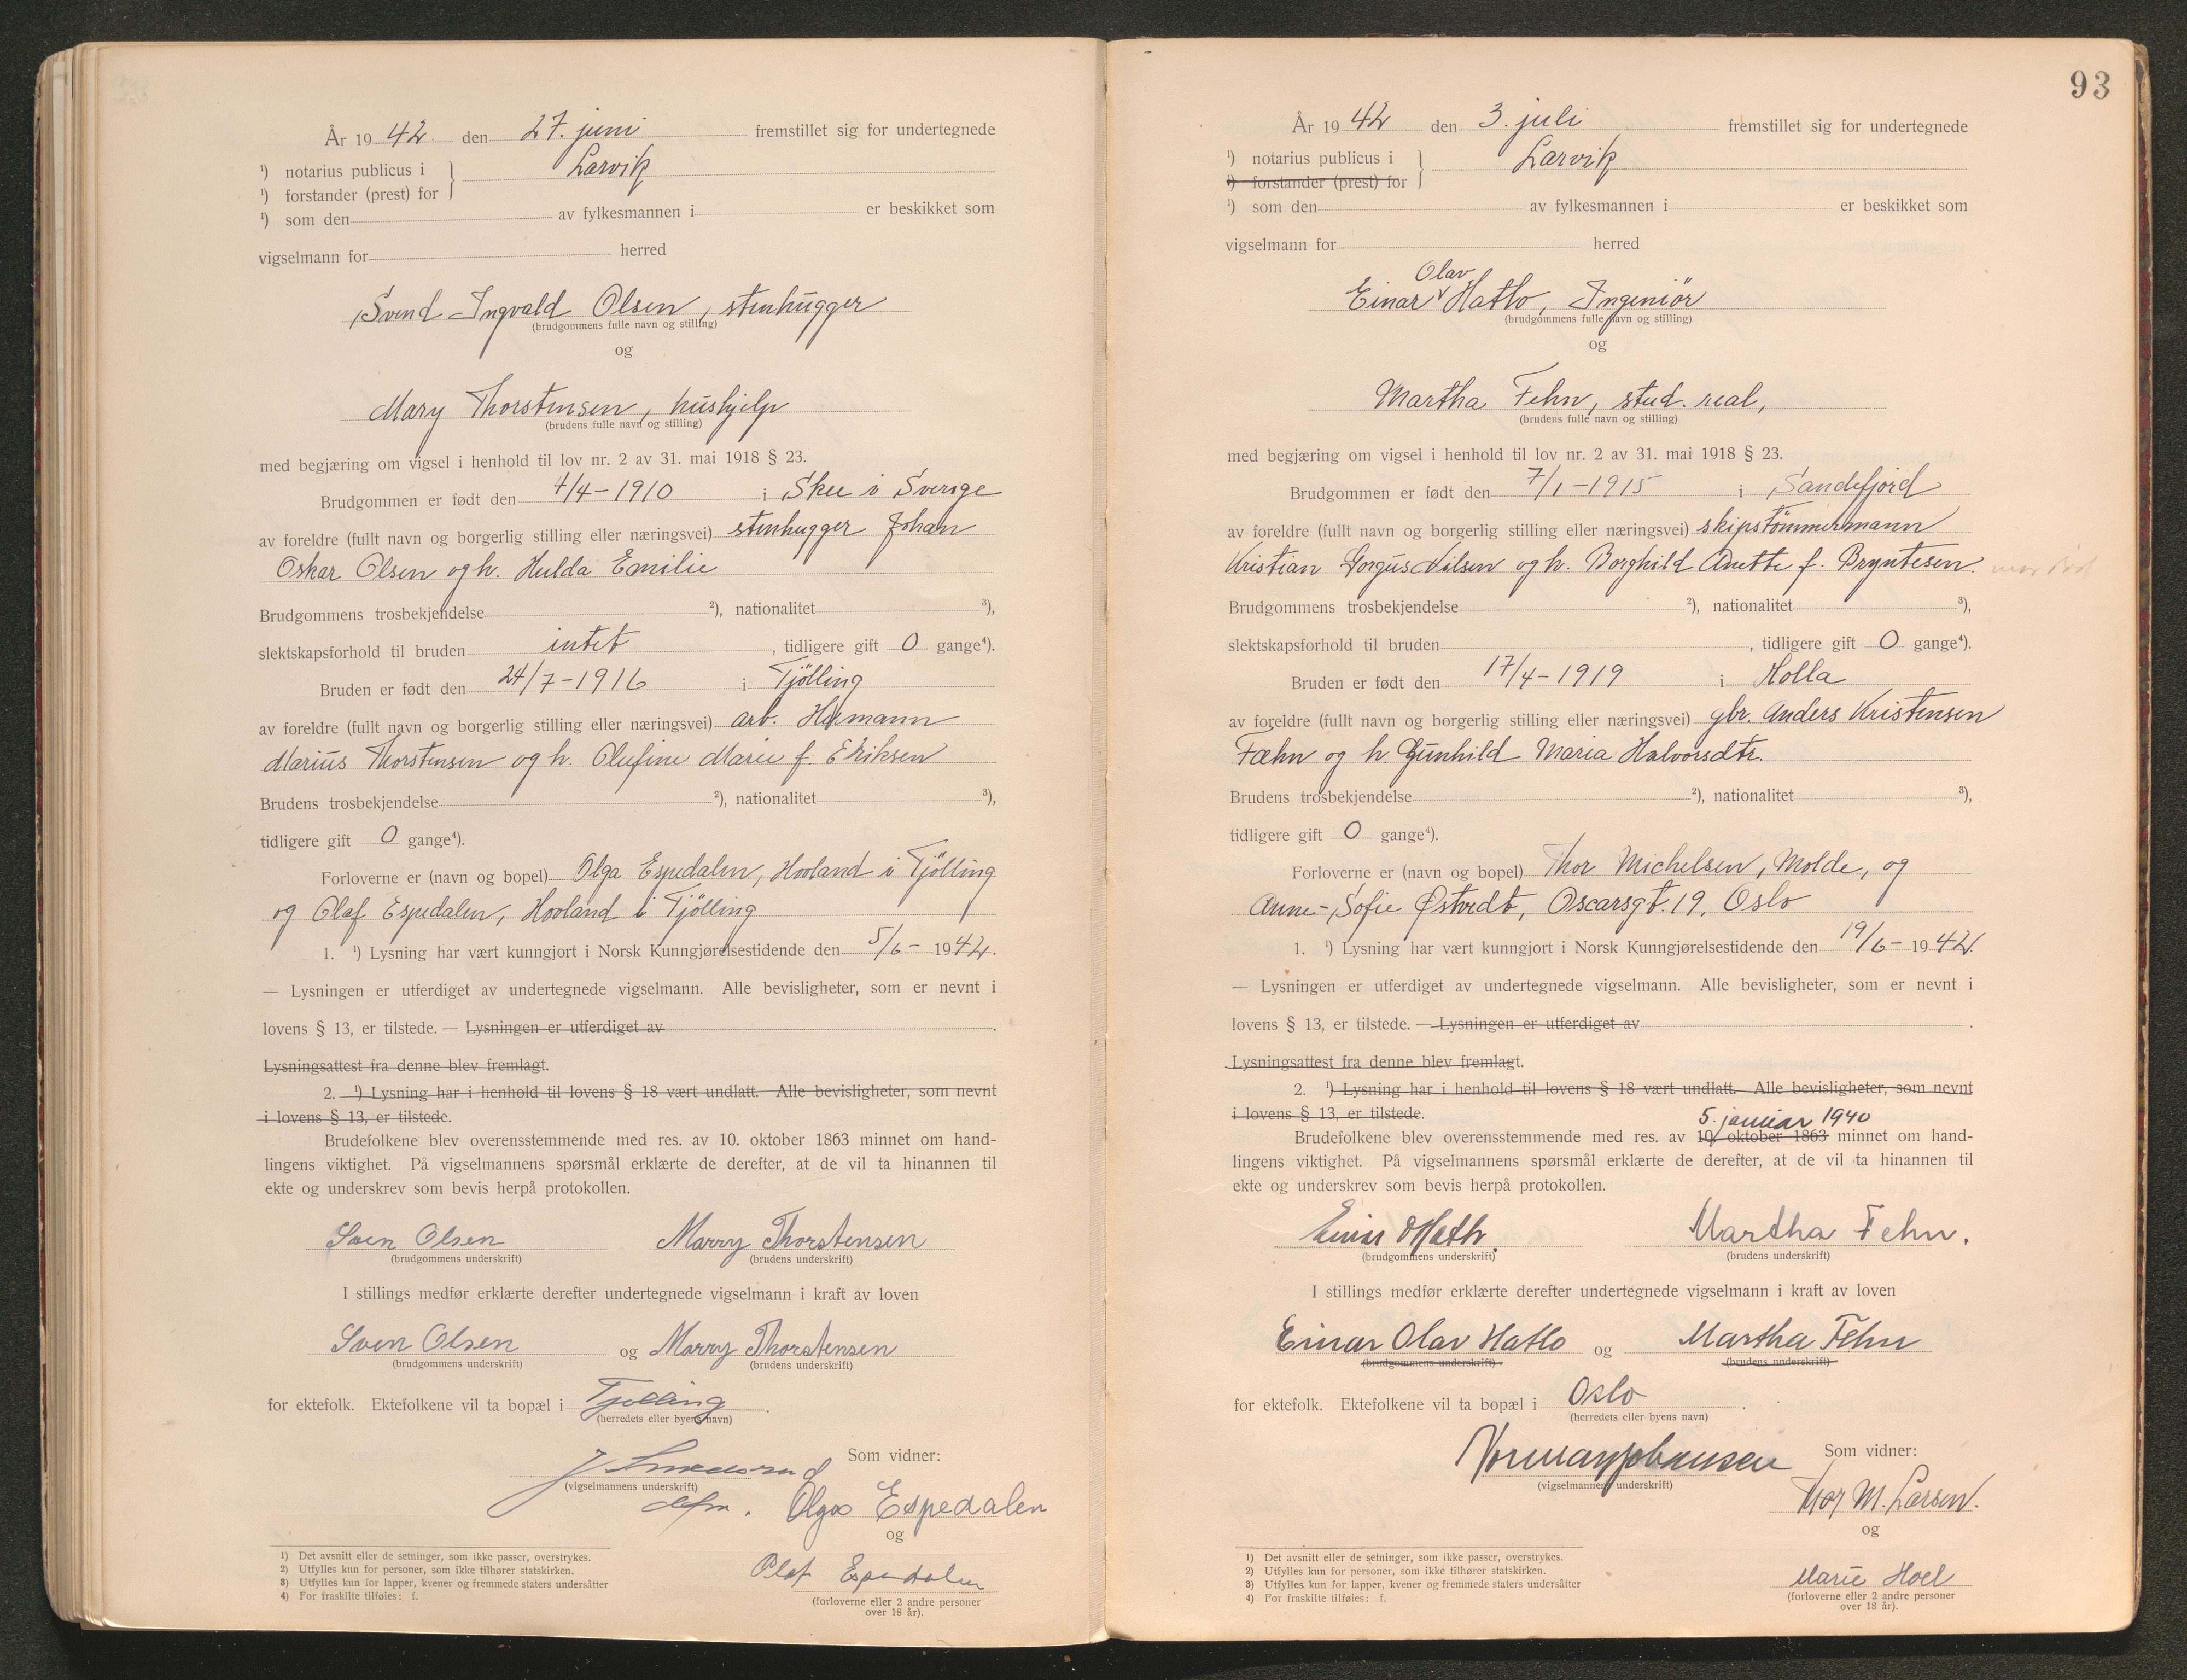 År 1942. den 27. juni fremstillet sig for undertegnede
¹) notarius publicus i } Larvik
¹) forstander (prest) for
¹) som den av fylkesmannen i er beskikket som
vigselmann for herred
Svend Ingvald Olsen, stenhugger
(brudgommens fulle navn og stilling)
og
Mary Thorstensen, hushjelp
(brudens fulle navn og stilling)
med begjæring om vigsel i henhold til lov nr. 2 av 31. mai 1918 § 23.
Brudgommen er født den 7/4-1910 i Skee i Sverige
av foreldre (fullt navn og borgerlig stilling eller næringsvei) stenhugger Johan
Oskar Olsen og h. Hulda Emilie
Brudgommens trosbekjendelse ²), nationalitet ³),
slektskapsforhold til bruden intet, tidligere gift 0 gange⁴).
Bruden er født den 24/7-1916 i Tjölling
av foreldre (fullt navn og borgerlig stilling eller næringsvei) arb. Hermann
Marius Thorstensen og h. Olufine Marie f. Eriksen
Brudens trosbekjendelse ²), nationalitet ³),
tidligere gift 0 gange⁴).
Forloverne er (navn og bopel) Olga Espedalen, Hovland i Tjölling
og Olaf Espedalen, Hovland i Tjölling
1. ¹) Lysning har vært kunngjort i Norsk Kunngjørelsestidende den 5/6- 1942.
— Lysningen er utferdiget av undertegnede vigselmann. Alle bevisligheter, som er nevnt i
lovens § 13, er tilstede. — Lysningen er utferdiget av .
Lysningsattest fra denne blev fremlagt.
2. ¹) Lysning har i henhold til lovens § 18 vært undlatt. Alle bevisligheter, som nevnt
i lovens § 13, er tilstede.
Brudefolkene blev overensstemmende med res. av 10. oktober 1863 minnet om hand-
lingens viktighet. På vigselmannens spørsmål erklærte de derefter, at de vil ta hinannen til
ekte og underskrev som bevis herpå protokollen.
Sven Olsen Marry Thorstensen
(brudgommens underskrift) (brudens underskrift)
I stillings medfør erklærte derefter undertegnede vigselmann i kraft av loven
Sven Olsen og Marry Thorstensen
(brudgommens underskrift) (brudens underskrift)
for ektefolk. Ektefolkene vil ta bopæl i Tjølling.
(herredets eller byens navn)
Som vidner:
(vigselmannens underskrift)
Olga Espedalen
og
Olaf Espedalen
(forloverne eller 2 andre personer
over 18 år).
1) Det avsnitt eller de setninger, som ikke passer, overstrykes.
2) Utfylles kun for personer, som ikke tilhører statskirken.
3) Utfylles kun for lapper, kvener og fremmede staters undersåtter
4) For fraskilte tilføies: f.
93
År 1942 den 3. juli fremstillet sig for undertegnede
¹) notarius publicus i } Larvik
¹) forstander (prest) for
¹) som den av fylkesmannen i er beskikket som
vigselmann for herred
Olav
Einar Hatlo, Ingeniör
(brudgommens fulle navn og stilling)
og
Martha Fehn, stud. real,
(brudens fulle navn og stilling)
med begjæring om vigsel i henhold til lov nr. 2 av 31. mai 1918 § 23.
Brudgommen er født den 7/1-1915 i Sandefjord
av foreldre (fullt navn og borgerlig stilling eller næringsvei) skipstömmermann
Kristian Gorgus Nilsen og h. Borghild Anette f. Bryntesen.
Brudgommens trosbekjendelse ²), nationalitet ³),
slektskapsforhold til bruden , tidligere gift 0 gange⁴).
Bruden er født den 17/4-1919 i Holla
av foreldre (fullt navn og borgerlig stilling eller næringsvei) gbr. Anders Kristensen
Fæhn og h Gunhild Maria Halvorsdtr.
Brudens trosbekjendelse ²), nationalitet ³),
tidligere gift 0 gange⁴).
Forloverne er (navn og bopel) Thor Michelsen, Molde, og
Anne-Sofie Østvedt, Oscarsgt. 19, Oslo
1. ¹) Lysning har vært kunngjort i Norsk Kunngjørelsestidende den 19/6- 1942.
— Lysningen er utferdiget av undertegnede vigselmann. Alle bevisligheter, som er nevnt i
lovens § 13, er tilstede. — Lysningen er utferdiget av .
Lysningsattest fra denne blev fremlagt.
2. ¹) Lysning har i henhold til lovens § 18 vært undlatt. Alle bevisligheter, som nevnt
i lovens § 13, er tilstede.
5. januar 1940
Brudefolkene blev overensstemmende med res. av 10. oktober 1863 minnet om hand-
lingens viktighet. På vigselmannens spørsmål erklærte de derefter, at de vil ta hinannen til
ekte og underskrev som bevis herpå protokollen.
Einar O Hatlo. Martha Fehn.
(brudgommens underskrift) (brudens underskrift)
I stillings medfør erklærte derefter undertegnede vigselmann i kraft av loven
Einar Olav Hatlo og Martha Fehn
(brudgommens underskrift) (brudens underskrift)
for ektefolk. Ektefolkene vil ta bopæl i Oslo.
(herredets eller byens navn)
Som vidner:
(vigselmannens underskrift)
Thor M. Larsen.
og
Marie Hoel
(forloverne eller 2 andre personer
over 18 år).
1) Det avsnitt eller de setninger, som ikke passer, overstrykes.
2) Utfylles kun for personer, som ikke tilhører statskirken.
3) Utfylles kun for lapper, kvener og fremmede staters undersåtter
4) For fraskilte tilføies: f.